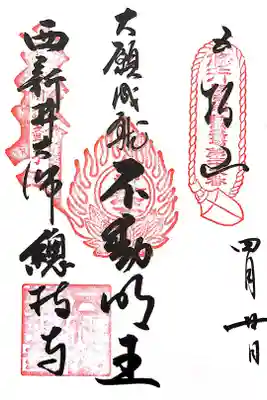 五智山
四月廿日
大願成就 不動明王
西新井大師 總持寺